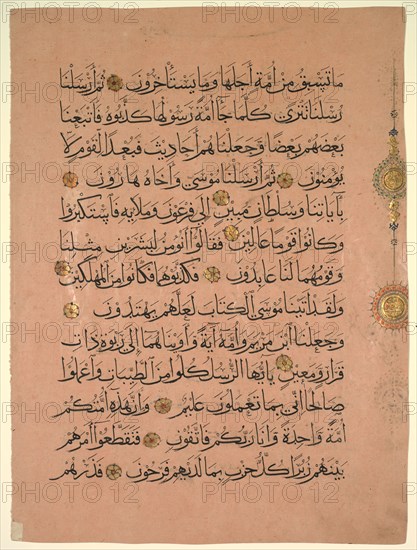 ما تسبق من أمة أجلها وما يستأخرون ثم أرسلنا
رسلنا تترى كلما جا أمة رسولها كذبوه فأتبعنا
بعضهم بعضا وجعلناهم أحاديث فبعدا لقوم لا
يؤمنون ثم أرسلنا موسى وأخاه هارون
بآياتنا وسلطان مبين إلى فرعون وملايه فاستكبروا
وكانوا قوما عالين فقالوا أنومن لبشرين مثلنا
وقومهما لنا عابدون فكذبوهما فكانوا من المهلكين
ولقد آتينا موسى الكتاب لعلهم يهتدون
وجعلنا ابن مريم وأمه آية وآويناهما إلى ربوة ذات
قرار ومعين يا أيها الرسل كلوا من الطيبات واعملوا
صالحا إني بما تعملون عليم وإن هذه أمتكم
أمة واحدة وأنا ربكم فاتقون فتقطعوا أمرهم
بينهم زبرا كل حزب بما لديهم فرحون فذرهم
PHOTO12